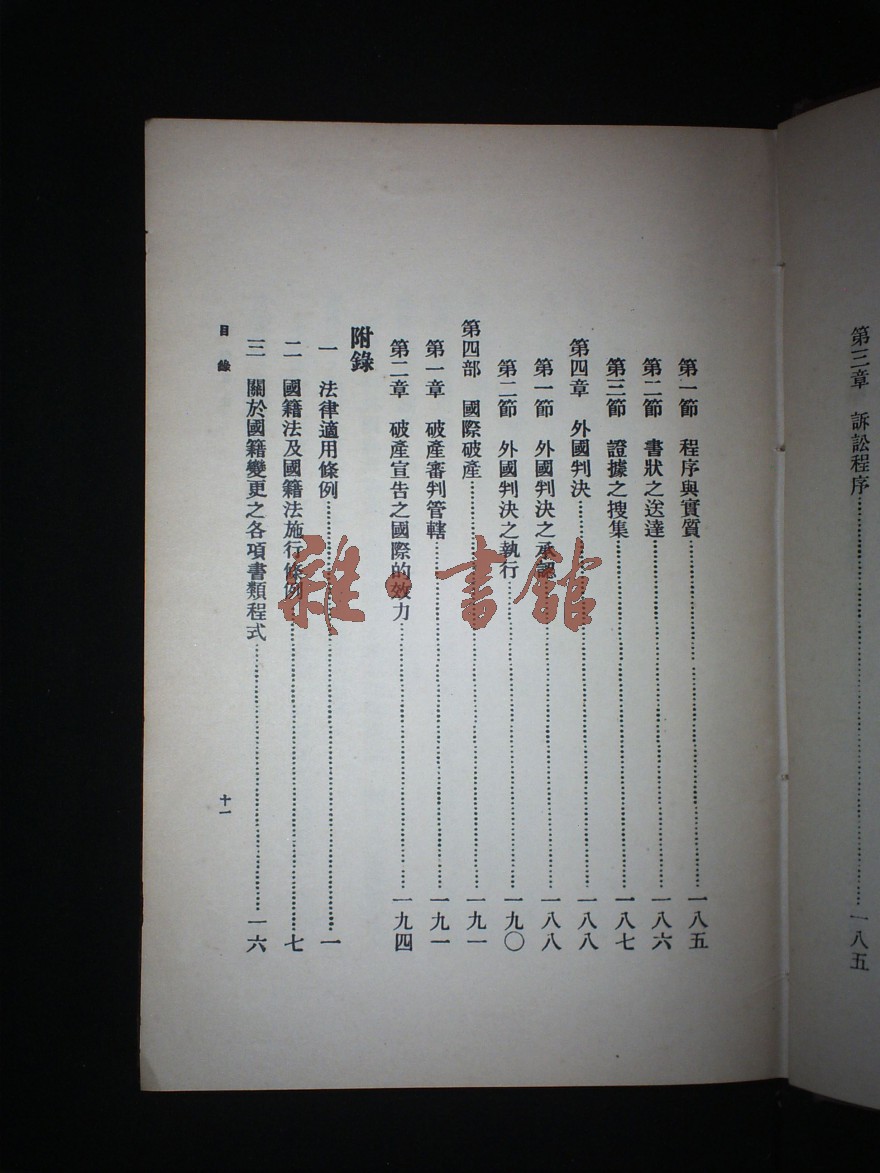 第三章　訴訟程序……一八五
第一節　程序與實質……一八五
第二節　書狀之送達……一八六
第三節　證據之搜集……一八七
第四章　外國判決……一八八
第一節　外國判決之承認……一八八
第二節　外國判決之執行……一九〇
第四部　國際破產……一九一
第一章　破產審判管轄……一九一
第二章　破產宣告之國際的效力……一九四
附錄
一　法律適用條例……一
二　國籍法及國籍法施行條例……七
三　關於國籍變更之各項書類程式……一六
目錄
十一
雜·書館